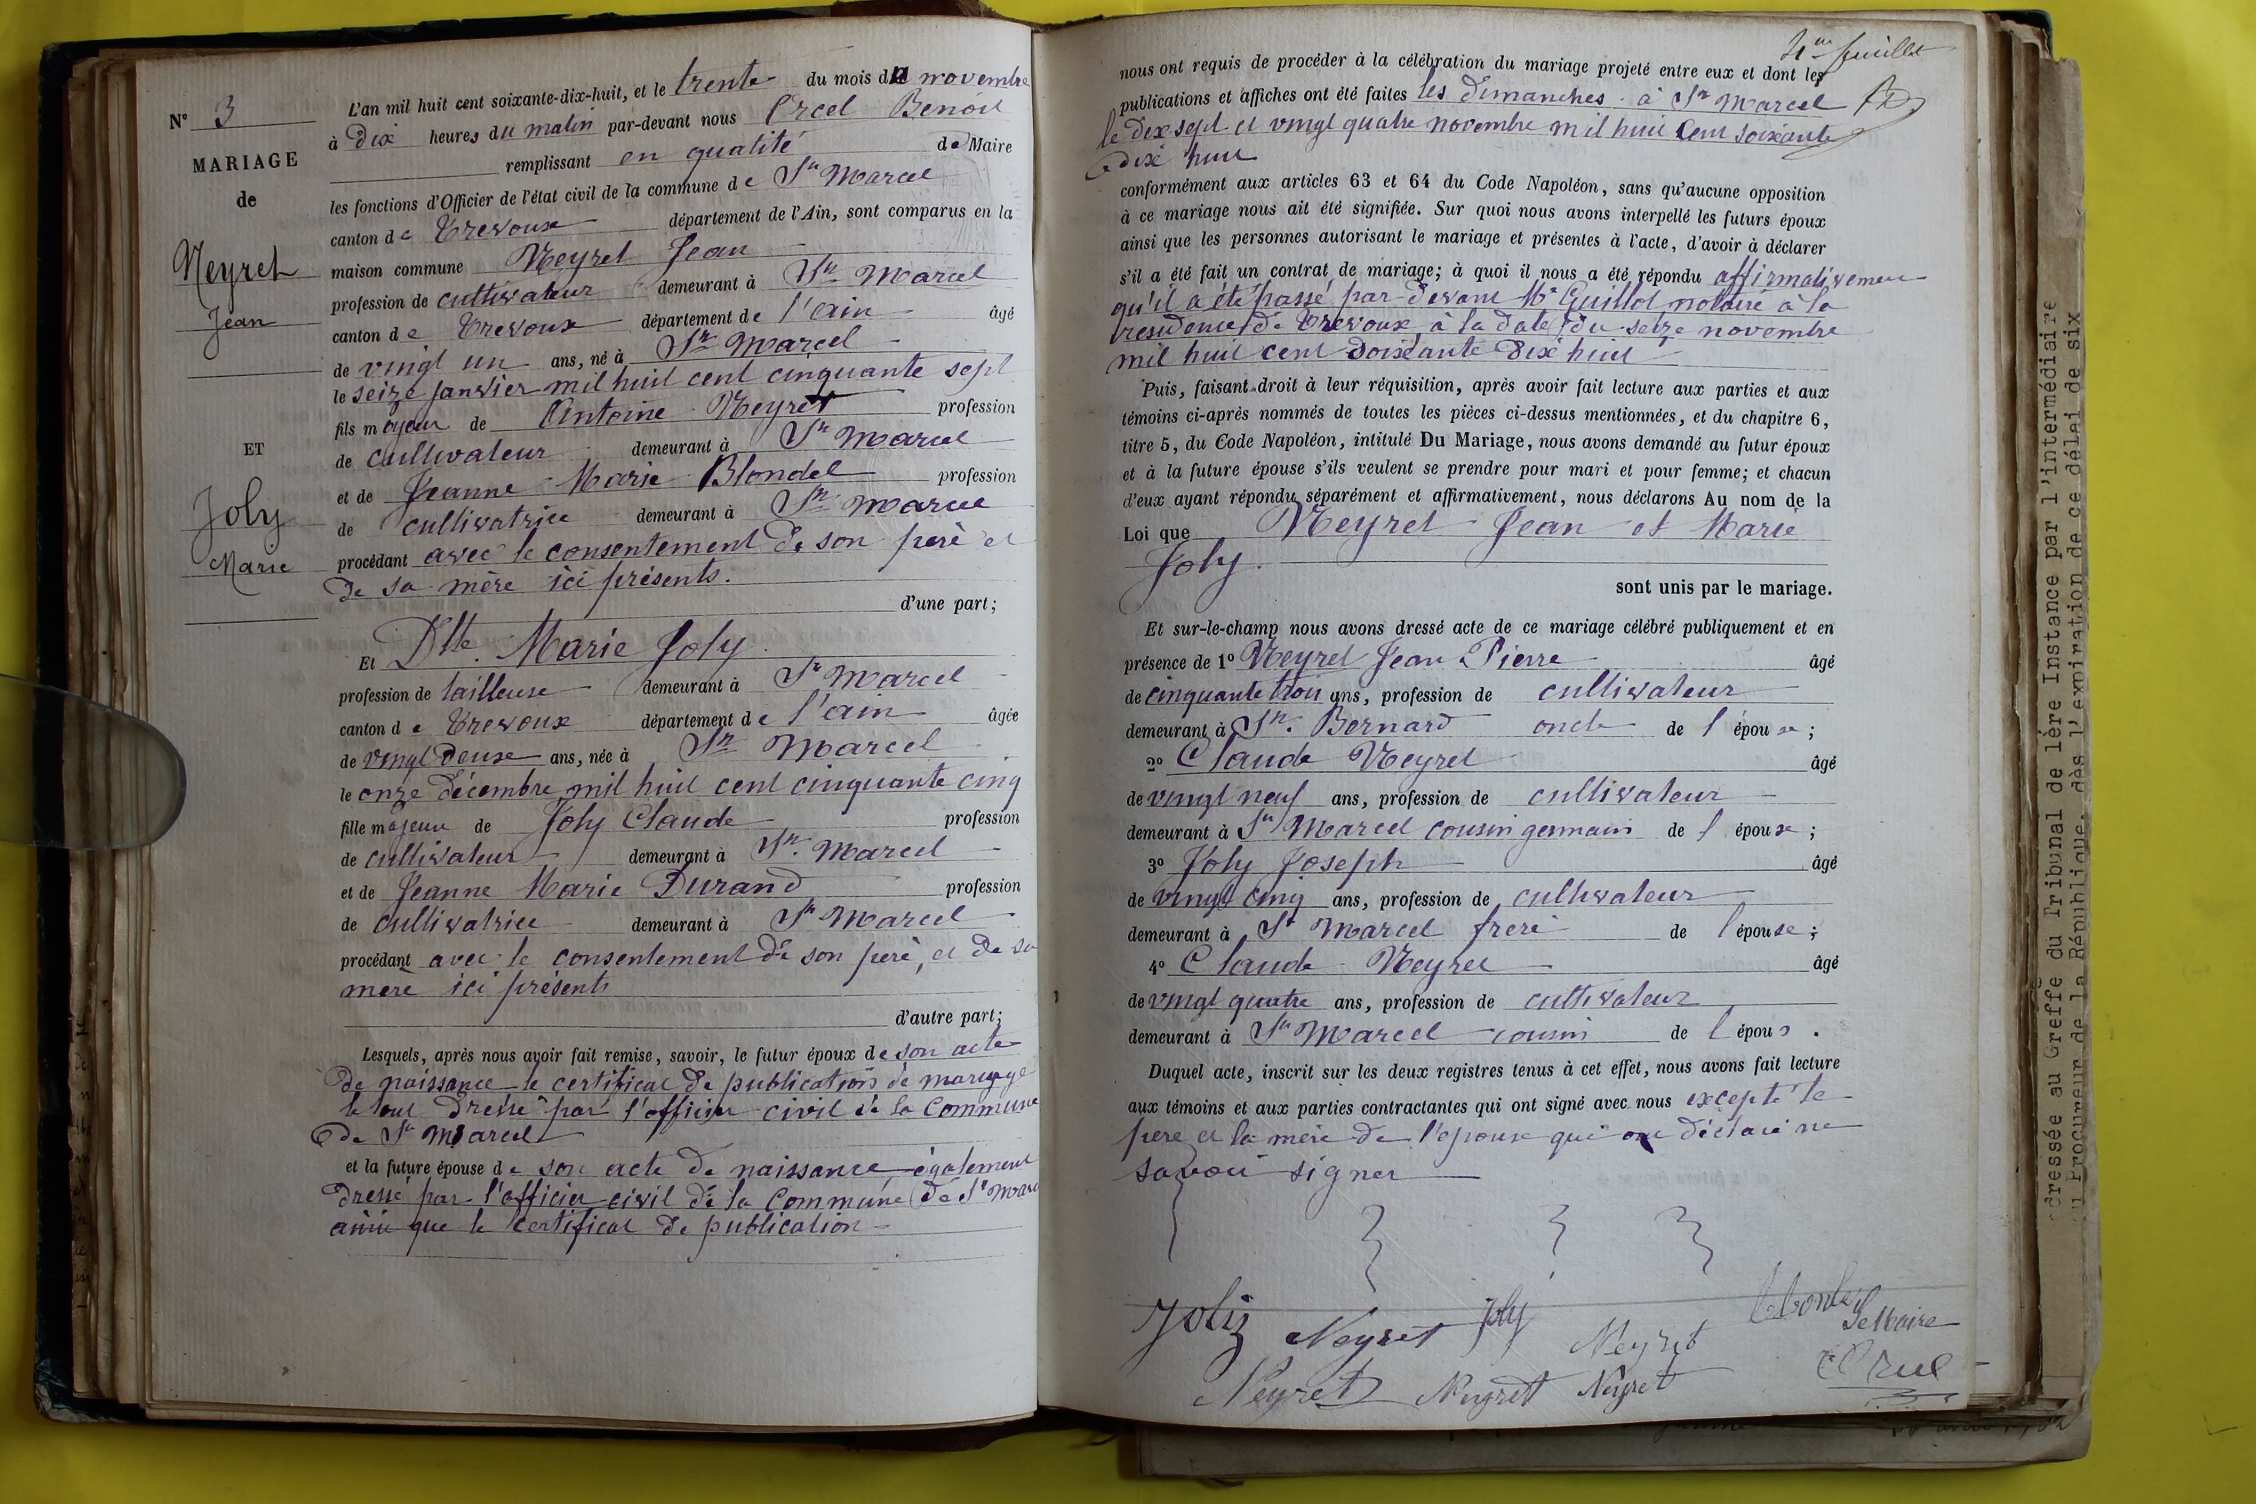 N° 3
MARIAGE
de
Neyret
Jean
ET
Joly
Marie
L'an mil huit cent soixante-dix-huit, et le trente du mois de novembre
à Dix heures du matin par-devant nous Orcel Benoit
remplissant en qualité de Maire
les fonctions d'Officier de l'état civil de la commune de St Marcel
canton de Trevoux département de l'Ain, sont comparus en la
maison commune Neyret Jean
profession de cultivateur demeurant à St Marcel
canton de Trevoux département de l'ain âgé
de vingt un ans, né à St Marcel
le seize janvier mil huit cent cinquante sept
fils majeur de Antoine Neyret profession
de cultivateur demeurant à St Marcel
et de Jeanne Marie Blondel profession
de cultivatrice demeurant à St Marcel
procédant avec le consentement de son père et
de sa mère ici présents.
d'une part;
Et Dlle Marie Joly
profession de tailleuse demeurant à St Marcel
canton de Trevoux département de l'ain âgée
de vingt deux ans, née à St Marcel
le onze décembre mil huit cent cinquante cinq
fille majeure de Joly Claude profession
de cultivateur demeurant à St Marcel
et de Jeanne Marie Durand profession
de cultivatrice demeurant à St Marcel
procédant avec le consentement de son père, et de sa
mère ici présents
d'autre part;
Lesquels, après nous avoir fait remise, savoir, le futur époux de son acte
de naissance le certificat de publications de mariage
le tout dressé par l'officier civil de la Commune
de St Marcel
et la future épouse de son acte de naissance également
dressé par l'officier civil de la Commune de St Marc
ainsi que le certificat de publication
4me feuillet
nous ont requis de procéder à la célébration du mariage projeté entre eux et dont les
publications et affiches ont été faites les dimanches à St Marcel
le dix sept et vingt quatre novembre mil huit cent soixante
dix huit
conformément aux articles 63 et 64 du Code Napoléon, sans qu'aucune opposition
à ce mariage nous ait été signifiée. Sur quoi nous avons interpellé les futurs époux
ainsi que les personnes autorisant le mariage et présentes à l'acte, d'avoir à déclarer
s'il a été fait un contrat de mariage; à quoi il nous a été répondu affirmativement
qu'il a été passé par devant Me Guillot notaire à la
residence de Trevoux à la date du seize novembre
mil huit cent soixante dix huit
Puis, faisant droit à leur réquisition, après avoir fait lecture aux parties et aux
témoins ci-après nommés de toutes les pièces ci-dessus mentionnées, et du chapitre 6,
titre 5, du Code Napoléon, intitulé Du Mariage, nous avons demandé au futur époux
et à la future épouse s'ils veulent se prendre pour mari et pour femme; et chacun
d'eux ayant répondu séparément et affirmativement, nous déclarons Au nom de la
Loi que Neyret Jean et Marie
Joly.
sont unis par le mariage.
Et sur-le-champ nous avons dressé acte de ce mariage célébré publiquement et en
présence de 1° Neyret Jean Pierre âgé
de cinquante trois ans, profession de cultivateur
demeurant à St. Bernard oncle de l'épouse;
2° Claude Neyret âgé
de vingt neuf ans, profession de cultivateur
demeurant à St Marcel cousin germain de l'épouse;
3° Joly Joseph âgé
de vingt cinq ans, profession de cultivateur
demeurant à St Marcel frere de l'épouse;
4° Claude Neyret âgé
de vingt quatre ans, profession de cultivateur
demeurant à St Marcel cousin de l'épous.
Duquel acte, inscrit sur les deux registres tenus à cet effet, nous avons fait lecture
aux témoins et aux parties contractantes qui ont signé avec nous excepté le
pere et la mère de l'epouse qui ont déclaré ne
savoir signer
Joly Neyret Joly Neyret Le Maire
Neyret Neyret Neyret Orcel
dressée au Greffe du Tribunal de 1ère Instance par l'intermédiaire
du Procureur de la République, dès l'expiration de ce délai de six